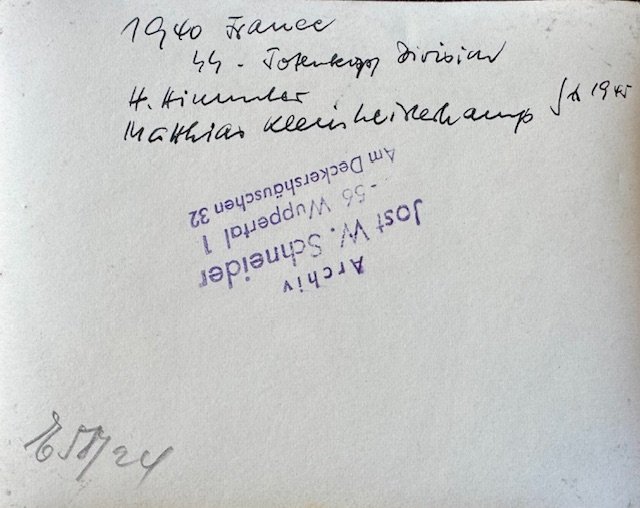 1940 France
SS - Totenkopf Division
H. Himmler
Matthias Kleinheisterkamp
1945
Archiv
Jost W. Schneider
-56 Wuppertal 1
Am Deckershäuschen 32